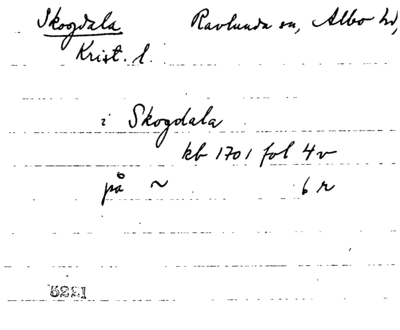 Skogdala Ravlunda sn, Albo hd,
Krist. l.
i Skogdala
kb 1701 fol 4v
på ~ 6 r